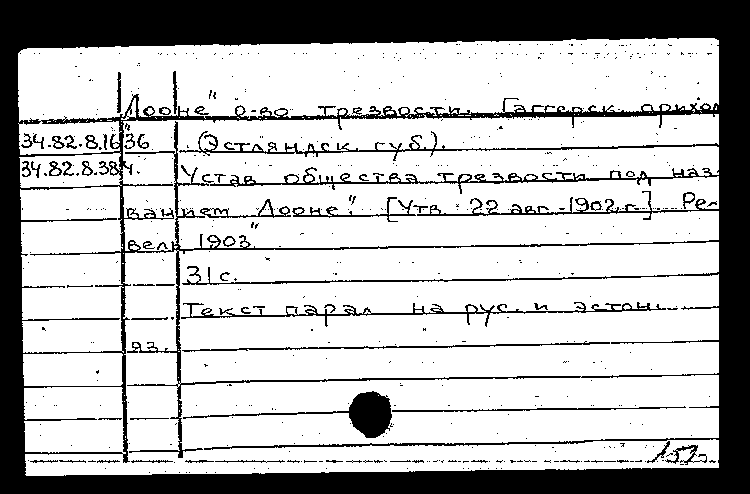 Лооне" о-во трезвости. Гаггерск. прихо
34.82.8.16 36 (Эстляндск. губ.).
34.82.8.38 4. Устав общества трезвости под наз-
ванием Лооне". [Утв. 22 авг. 1902 г.]. Ре-
вель, 1903"
31 с.
Текст парал. на рус. и эстон.
яз.